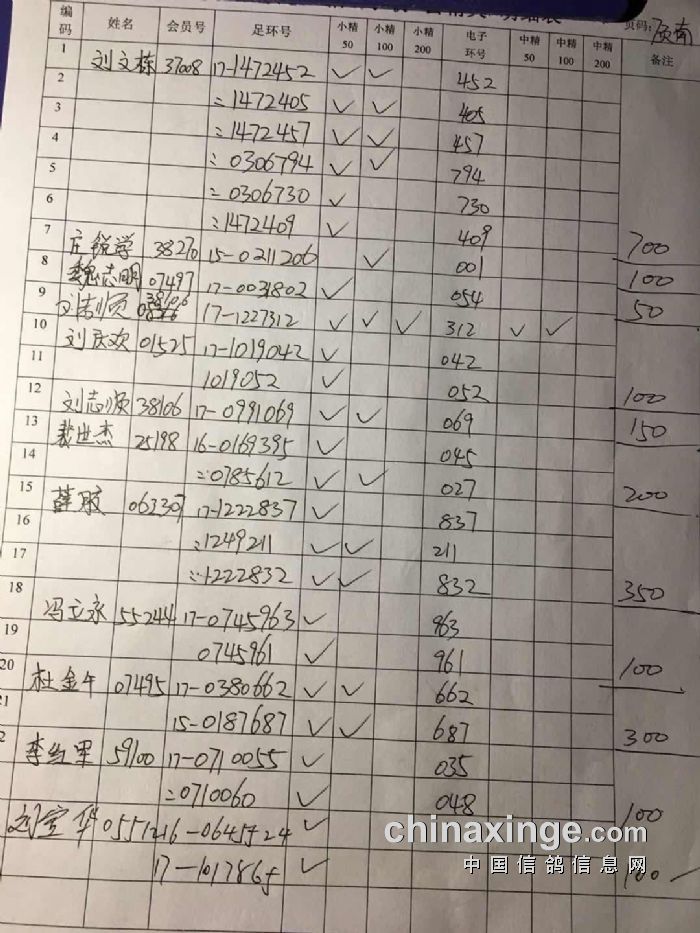 页码:
编码 姓名 会员号 足环号 小精50 小精100 小精200 电子环号 中精50 中精100 中精200 备注
1 刘文栋 37008 17-1472452 ✓ ✓ 452
2 =1472405 ✓ ✓ 405
3 =1472457 ✓ ✓ 457
4 =0306794 ✓ ✓ 794
5 =0306730 ✓ 730
6 =1472409 ✓ 409 700
7 庄锐学 38270 15-0211206 ✓ 001 100
8 魏志明 07497 17-0031802 ✓ 054 50
9 38106 17-1227312 ✓ ✓ ✓ 312 ✓ ✓
10 刘庆欢 01525 17-1019042 ✓ 042
11 1019052 ✓ 052 100
12 刘志顺 38106 17-0991069 ✓ ✓ 069 150
13 裁世杰 25198 16-0169395 ✓ 045
14 =0785612 ✓ ✓ 027 200
15 薛胶 063307 17-1222837 ✓ 837
16 =1249211 ✓ ✓ 211
17 =1222832 ✓ ✓ 832 350
18 冯立永 55244 17-0745963 ✓ 963
19 0745961 ✓ 961 100
20 杜金午 07495 17-0380662 ✓ ✓ 662
21 15-0187687 ✓ ✓ 687 300
2 李红军 59100 17-0710055 ✓ 035
=0710060 ✓ 048 100
刘宝华 0551216-0645524 ✓
17-1017865 ✓ 100
chinaxinge.com
中国信鸽信息网